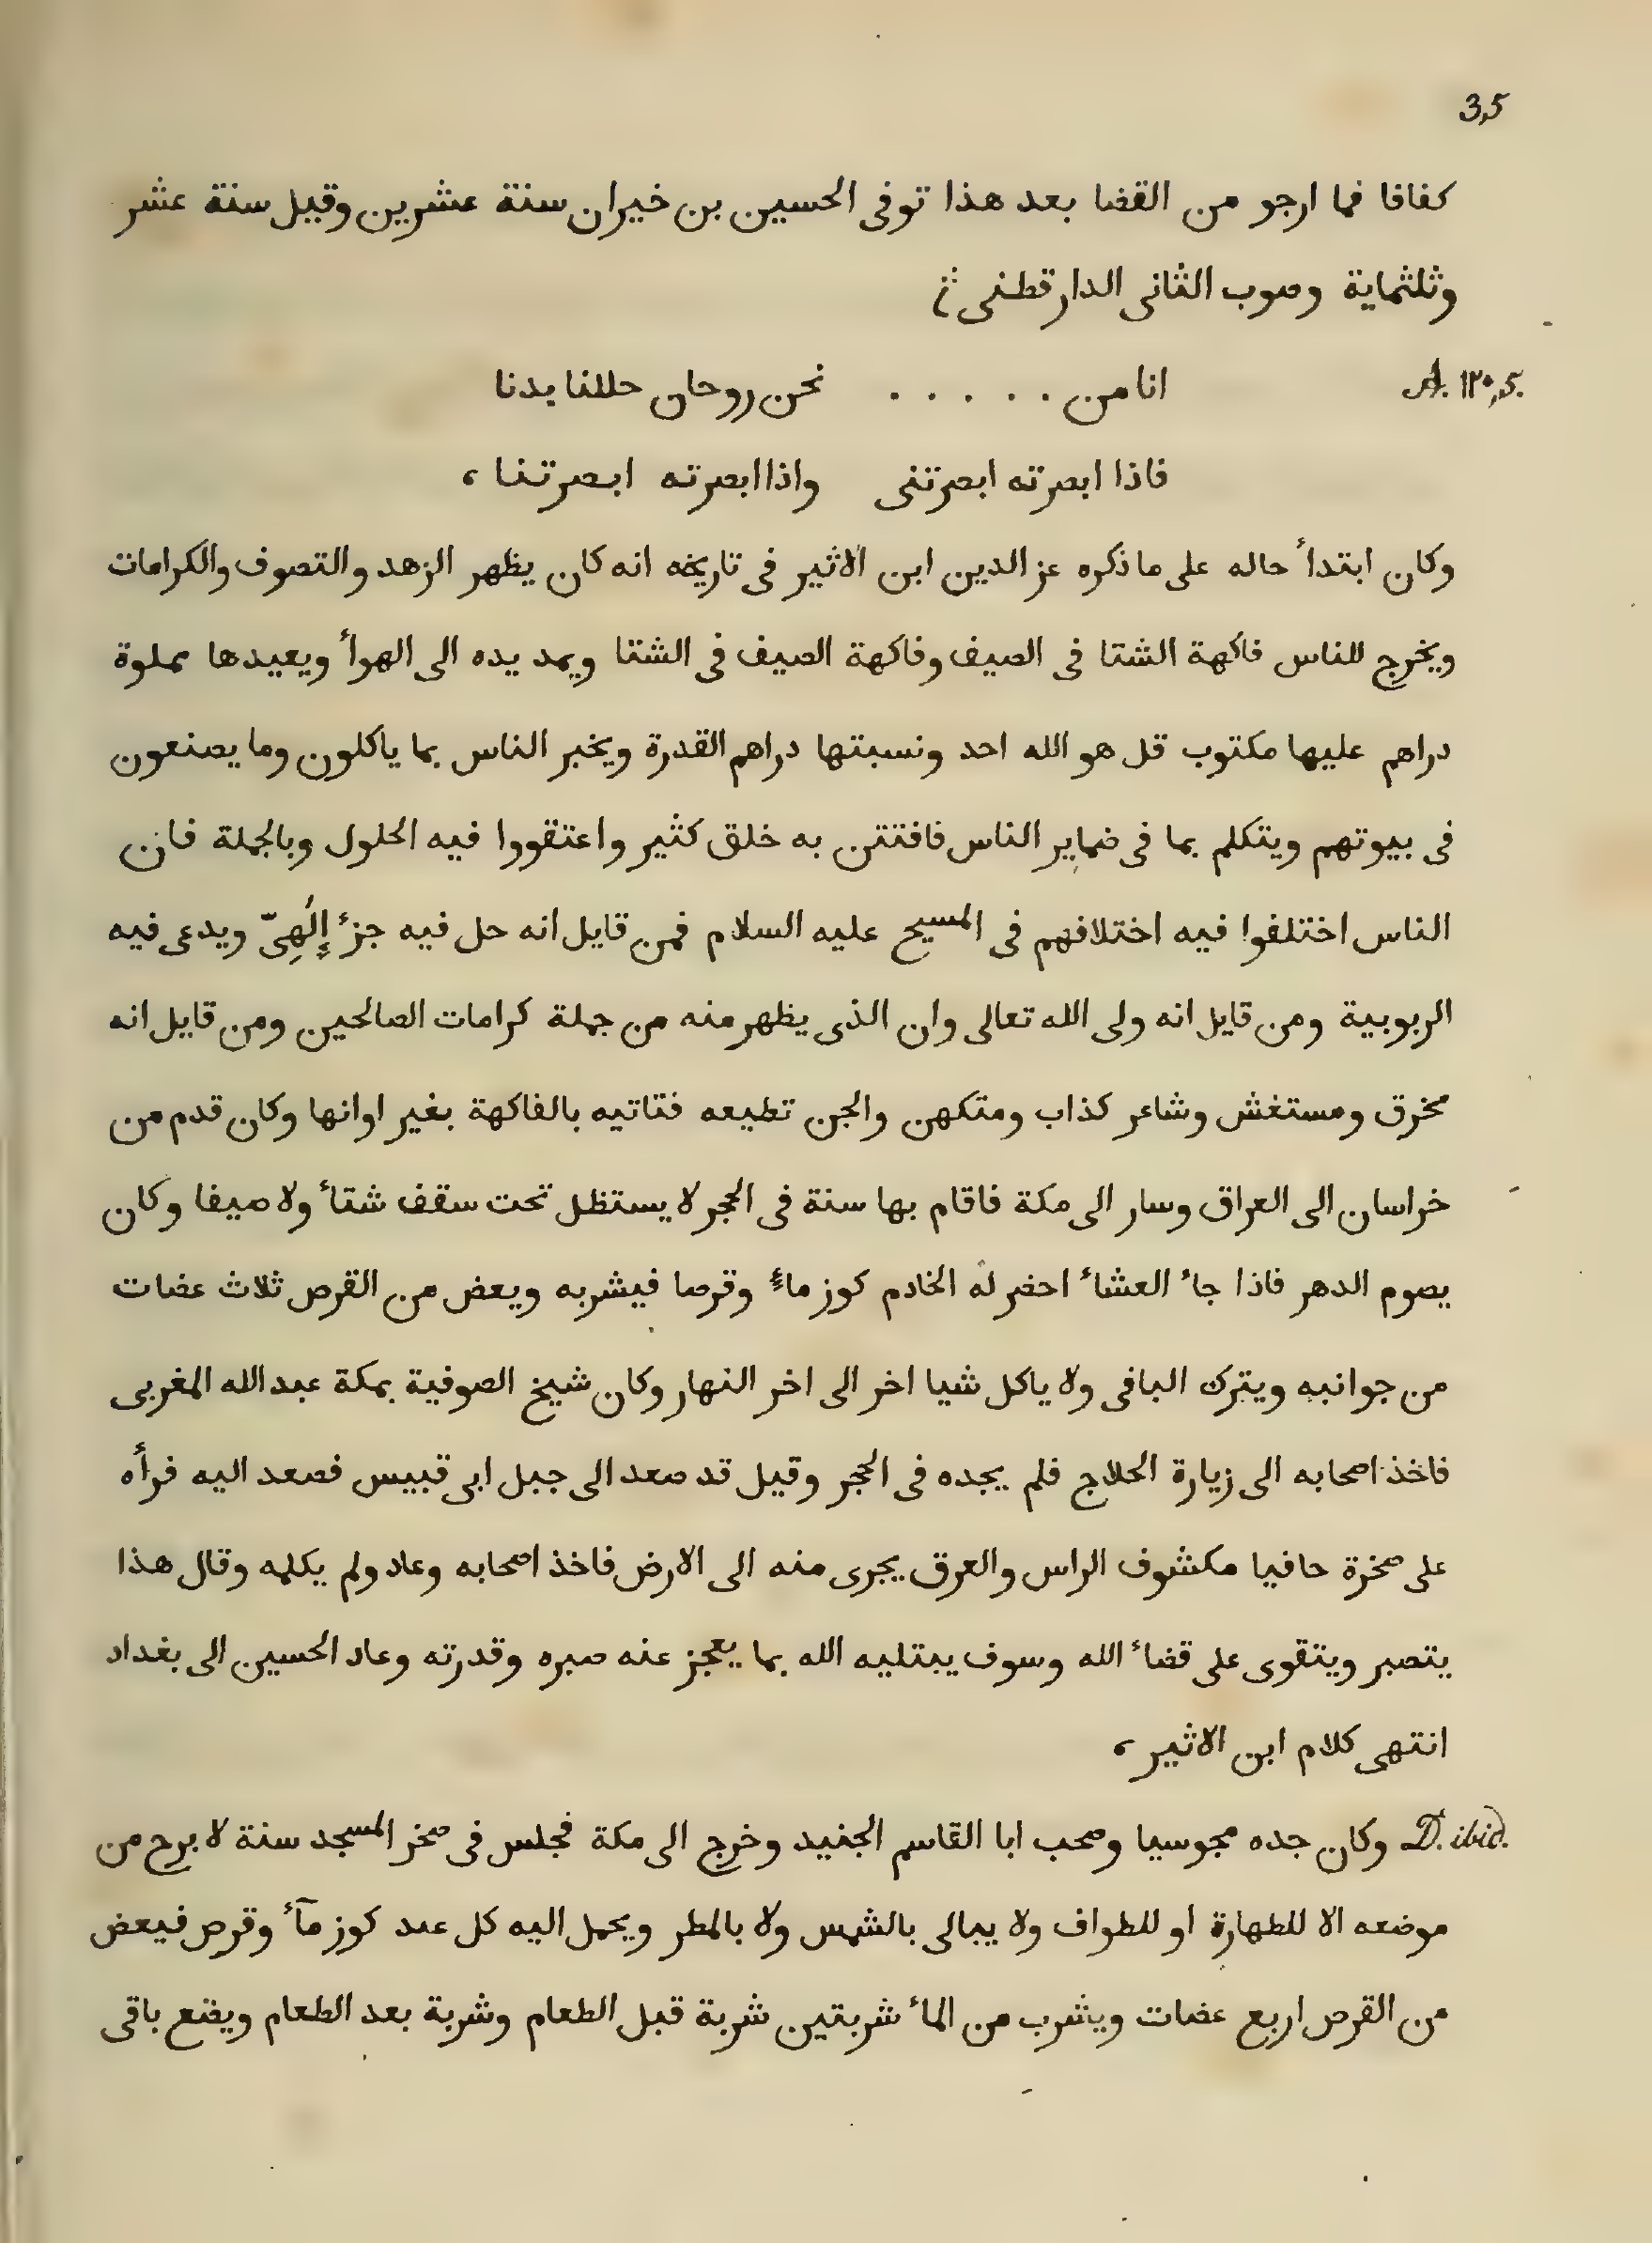 35
كفافا فما ارجو من القضا بعد هذا توفى الحسين بن خيران سنة عشرين وقيل سنة عشر
وثلثماية وصوب الثانى الدارقطنى
A. ١٢٠,5. انا من . . . . . نحن روحان حللنا بدنا
فاذا ابصرته ابصرتنى واذا ابصرته ابصرتنا ،
وكان ابتدأ حاله على ما ذكره عز الدين ابن الاثير فى تاريخه انه كان يظهر الزهد والتصوف والكرامات
ويخرج للناس فاكهة الشتا فى الصيف وفاكهة الصيف فى الشتا ويمد يده الى الهوأ ويعيدها مملوة
دراهم عليها مكتوب قل هو الله احد ونسبتها دراهم القدرة ويخبر الناس بما ياكلون وما يصنعون
فى بيوتهم ويتكلم بما فى ضماير الناس فافتتن به خلق كثير واعتقووا فيه الحلول وبالجملة فان
الناس اختلفوا فيه اختلافهم فى المسيح عليه السلام فمن قايل انه حل فيه جزٔ إلٰهِىّ ويدعى فيه
الربوبية ومن قايل انه ولى الله تعالى وان الذى يظهر منه من جملة كرامات الصالحين ومن قايل انه
مخرق ومستغش وشاعر كذاب ومتكهن والجن تطيعه فتاتيه بالفاكهة بغير اوانها وكان قدم من
خراسان الى العراق وسار الى مكة فاقام بها سنة فى الحجر لا يستظل تحت سقف شتأ ولا صيفا وكان
يصوم الدهر فاذا جأ العشأ احضر له الخادم كوز مأ وقرصا فيشربه ويعض من القرص ثلاث عضات
من جوانبه ويترك الباقى ولا ياكل شيا اخر الى اخر النهار وكان شيخ الصوفية بمكة عبد الله المغربى
فاخذ اصحابه الى زيارة الحلاج فلم يجده فى الحجر وقيل قد صعد الى جبل ابى قبيس فصعد اليه فرأه
على صخرة حافيا مكشوف الراس والعرق يجرى منه الى الارض فاخذ اصحابه وعاد ولم يكلمه وقال هذا
يتصبر ويتقوى على قضأ الله وسوف يبتليه الله بما يعجز عنه صبره وقدرته وعاد الحسين الى بغداد
انتهى كلام ابن الاثير ،
D. ibid. وكان جده مجوسيا وصحب ابا القاسم الجنيد وخرج الى مكة فجلس فى صخر المسجد سنة لا برح من
موضعه الا للطهارة او للطواف ولا يبالى بالشمس ولا بالمطر ويحمل اليه كل عند كوز مآٔ وقرص فيعض
من القرص اربع عضات ويشرب من المأ شربتين شربة قبل الطعام وشربة بعد الطعام ويضع باقى